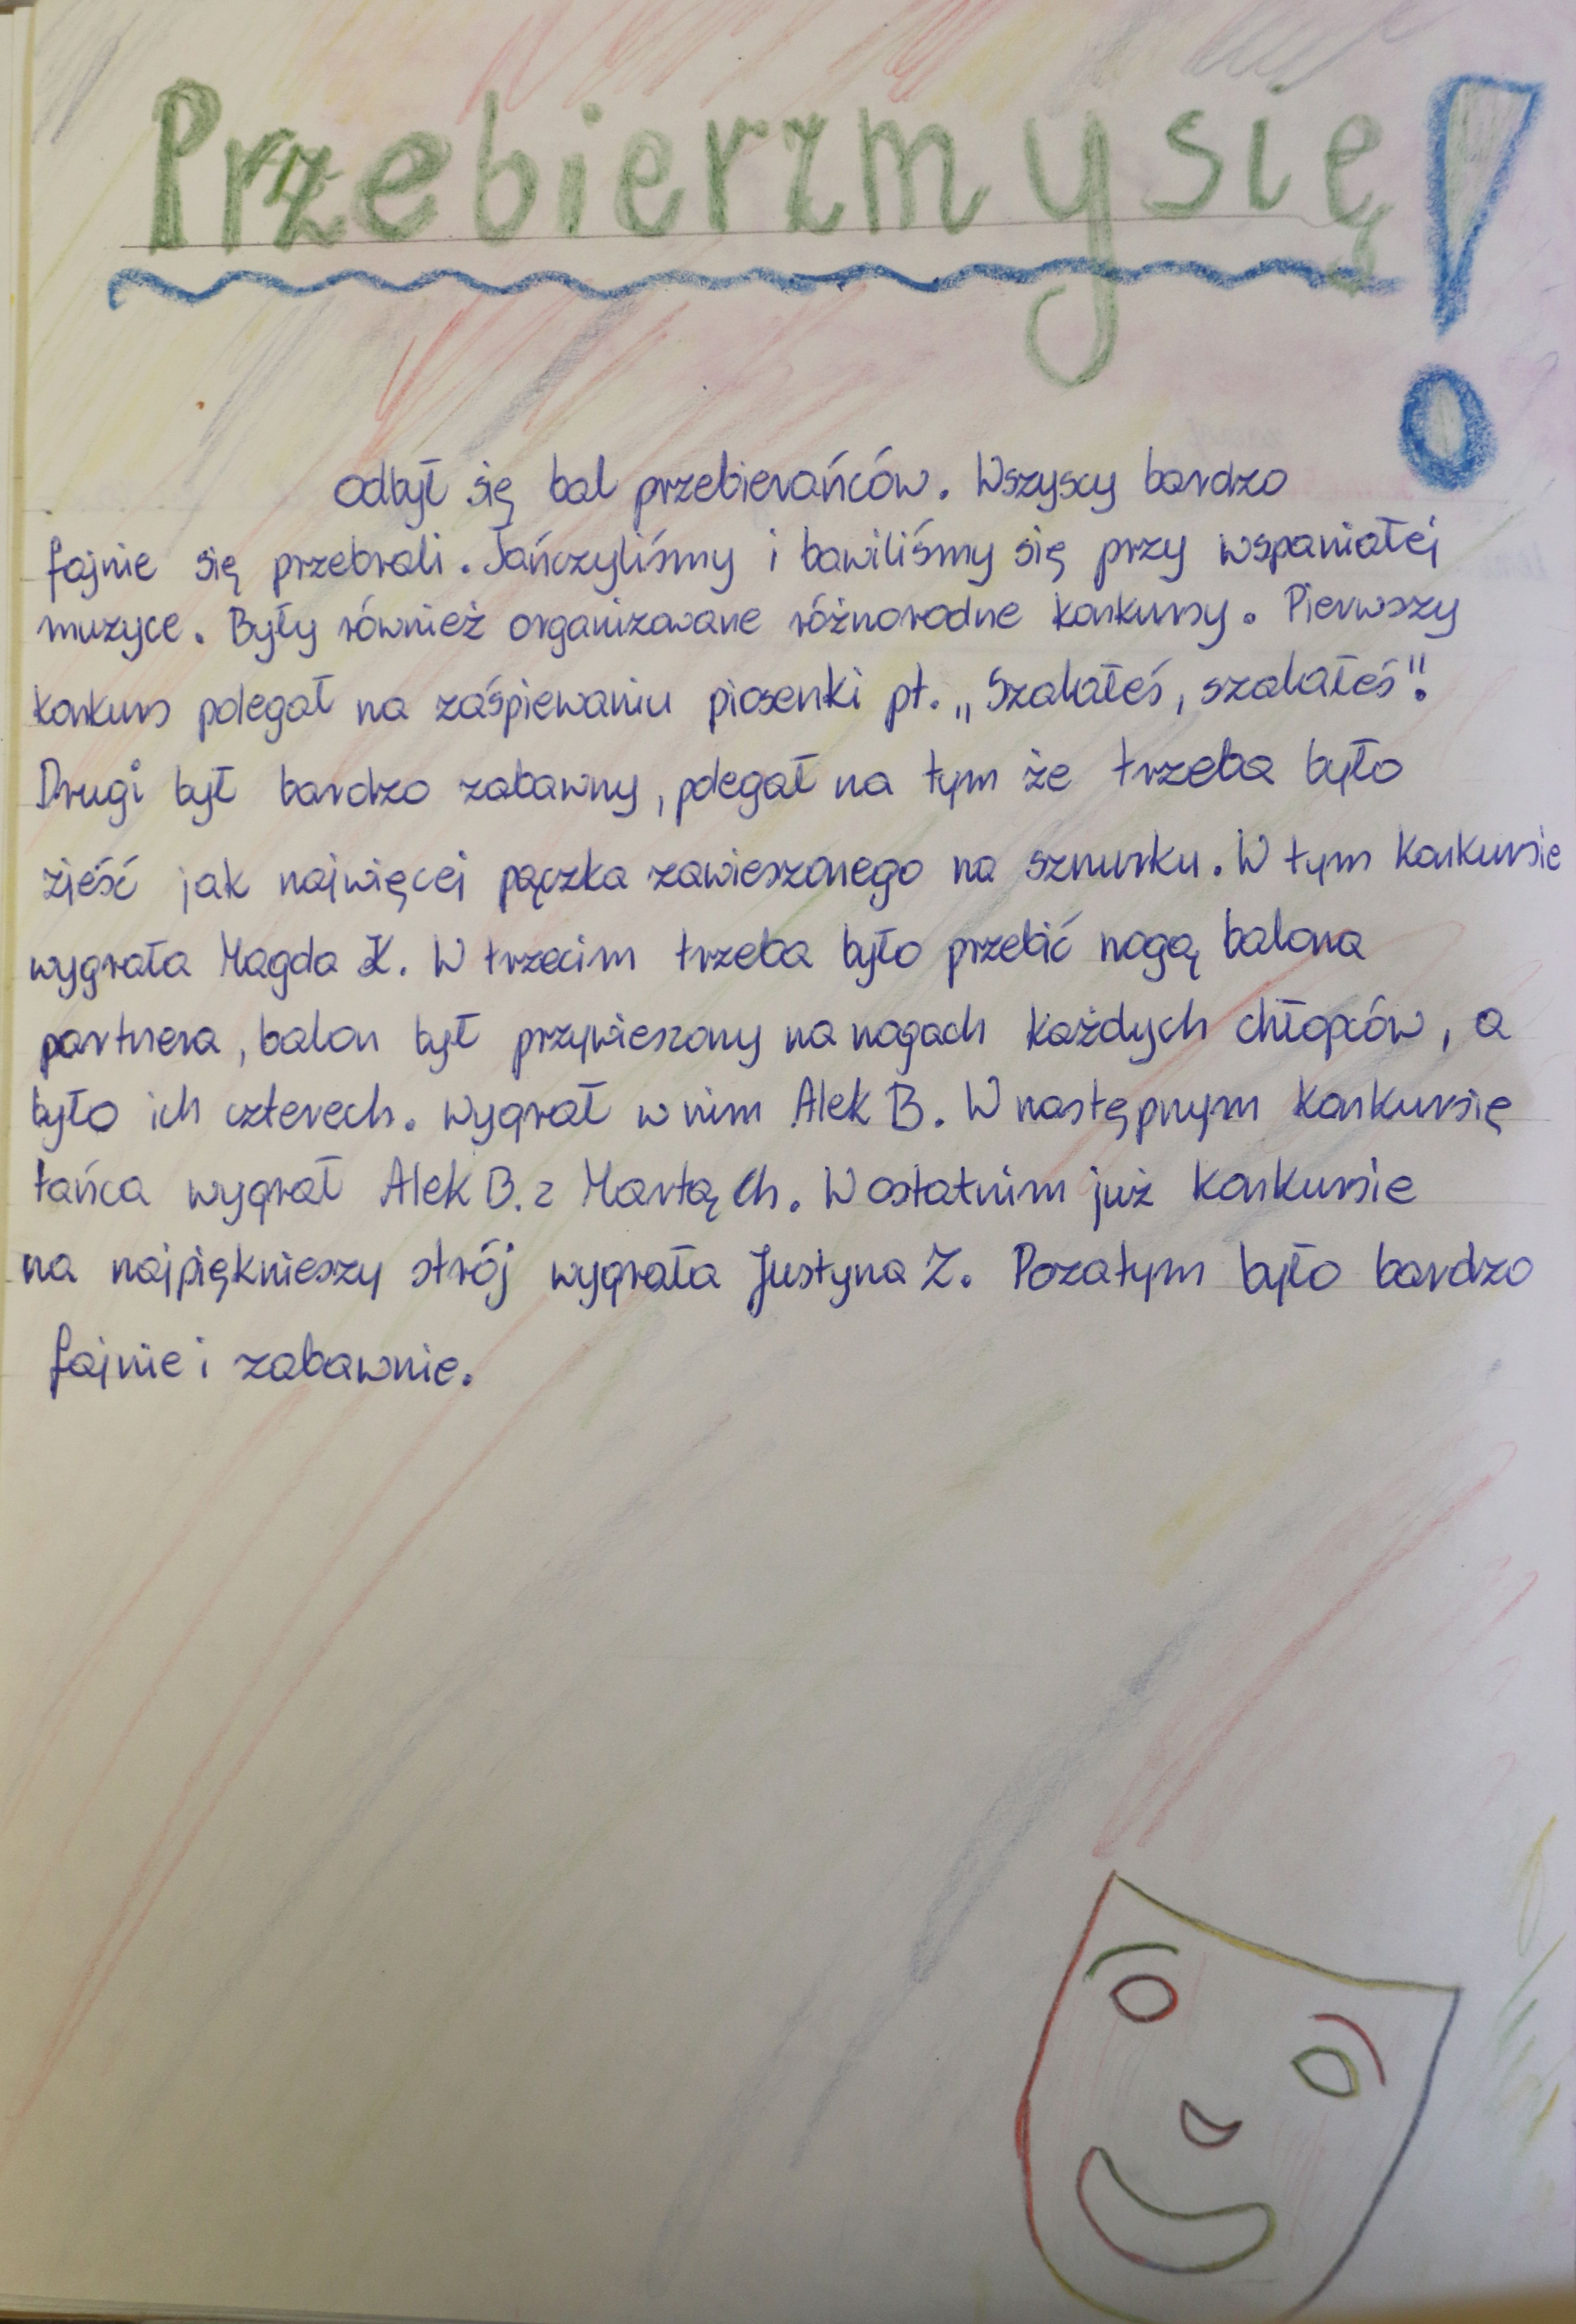 Przebierzmy się!
odbył się bal przebierańców. Wszyscy bardzo
fajnie się przebrali. Tańczyliśmy i bawiliśmy się przy wspaniałej
muzyce. Były również organizowane różnorodne konkursy. Pierwszy
konkurs polegał na zaśpiewaniu piosenki pt. „Szalałeś, szalałeś".
Drugi był bardzo zabawny, polegał na tym że trzeba było
zjeść jak najwięcej pączka zawieszonego na sznurku. W tym konkursie
wygrała Magda K. W trzecim trzeba było przebić nogą balona
partnera, balon był przywieszony na nogach każdych chłopców, a
było ich czterech. Wygrał w nim Alek B. W następnym konkursię
tańca wygrał Alek B. z Martą Ch. W ostatnim już konkursie
na najpiękniejszy strój wygrała Justyna Z. Pozatym było bardzo
fajnie i zabawnie.